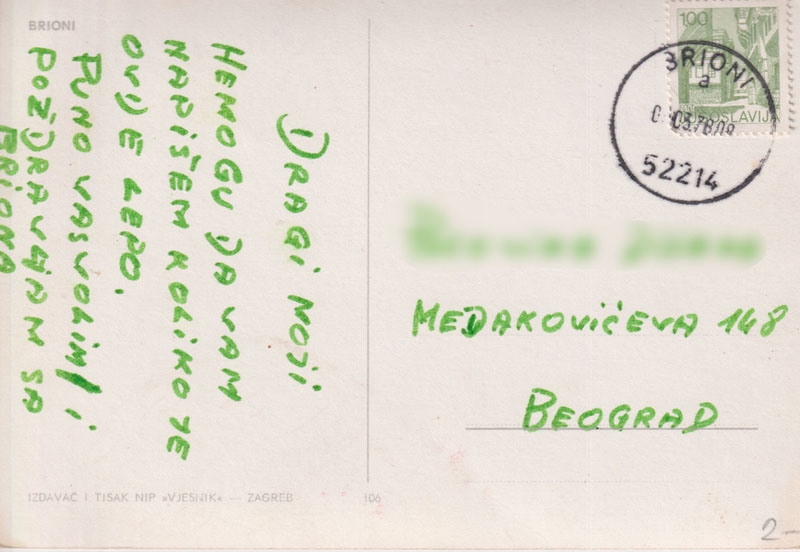 BRIONI
DRAGI MOJI
NEMOGU DA VAM
NAPIŠEM KOLIKO JE
OVIJE LEPO.
PUNO VAS VOLIM I
POZDRAVLJAM SA
BRIONA
IZDAVAČ I TISAK NIP »VJESNIK« — ZAGREB 106
100
JUGOSLAVIJA
BRIONI
a
52214
MEDAKOVIĆEVA 148
BEOGRAD
2-